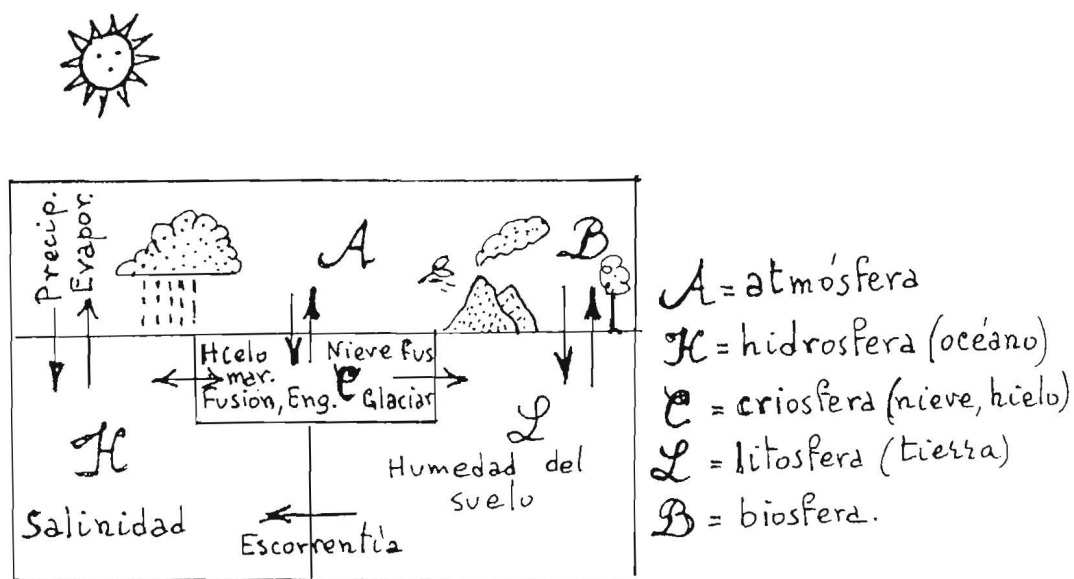 Precip.
Evapor.
A
B
Hcelo
mar.
Fusión, Eng.
Nieve fus
C
Glaciar
H
Salinidad
L
Humedad del
suelo
Escorrentía
A = atmósfera
H = hidrosfera (océano)
C = criosfera (nieve, hielo)
L = litosfera (tierra)
B = biosfera.